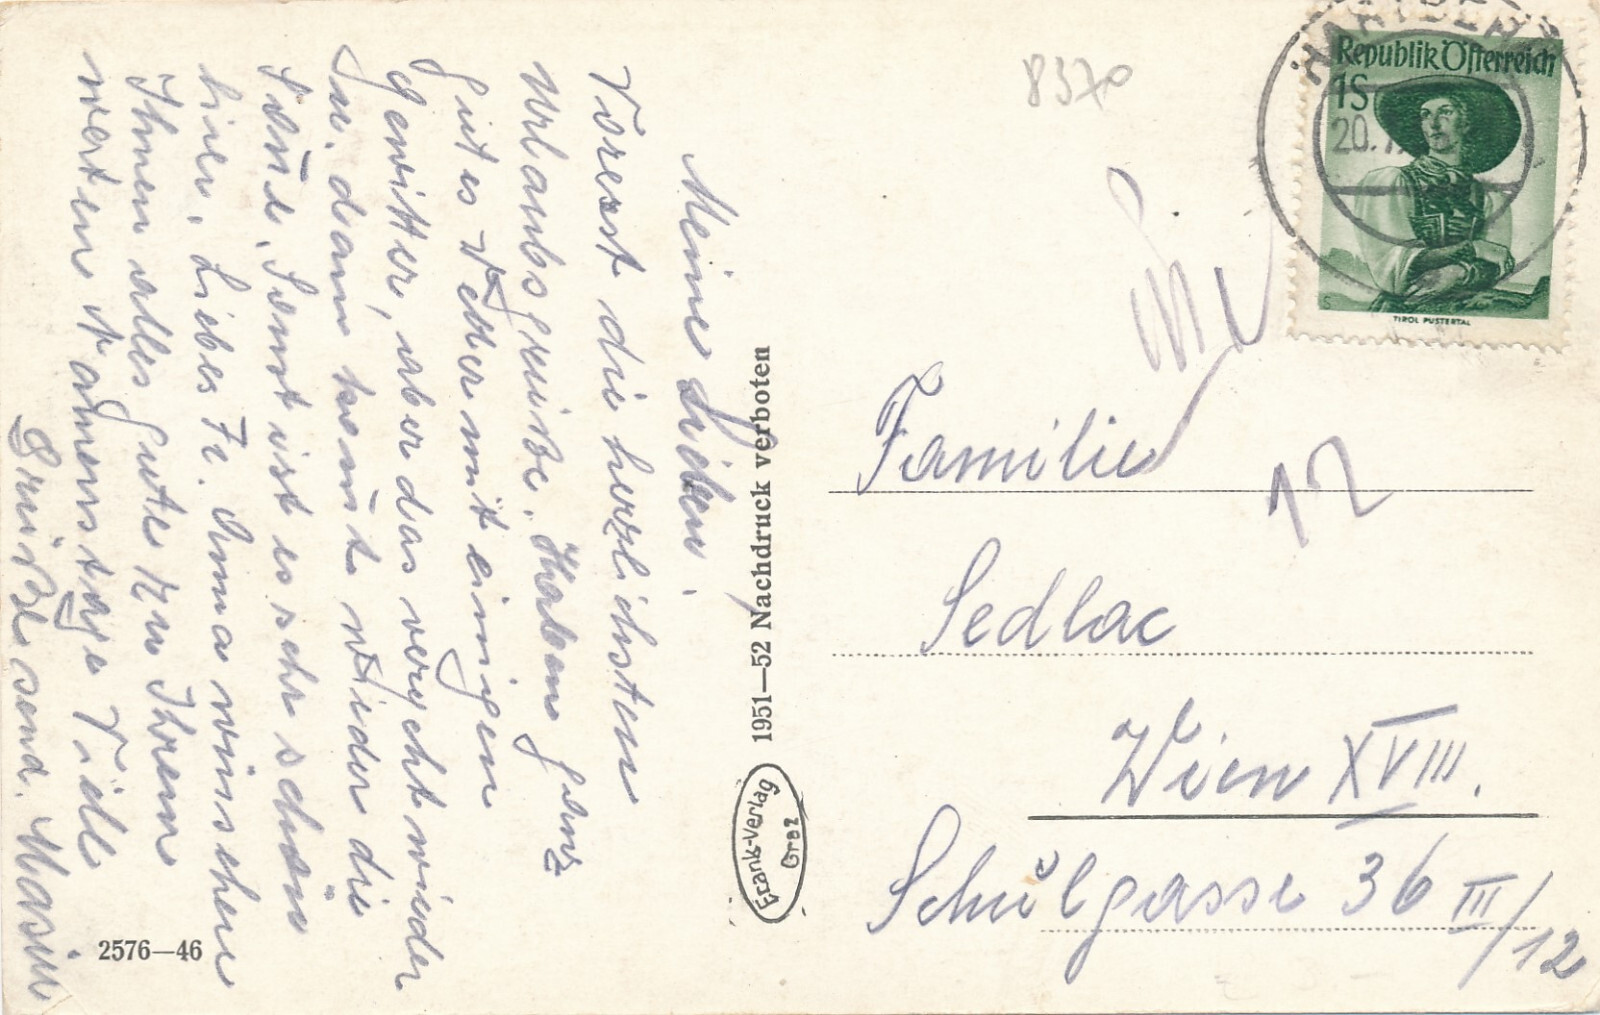 Meine Lieben.
Vorerst die herzlichsten
Urlaubsgrüsse. Haben ganz
gutes Wetter mit einigen
Gewitter, aber das vergeht wieder
u. dann kom̄t wieder die
Son̄e. Sonst ist es sehr schön
hier. Liebe Fr. Anna wünschen
Ihnen alles Gute zu Ihrem
werten Namenstage Viele
Grüße send.
2576—46
1951—52 Nachdruck verboten
Frank-Verlag
Graz
8570
Republik Österreich
1S
20.
TIROL PUSTERTAL
12
Familie
Sedlac
Wien XVIII.
Schulgasse 36 III/12